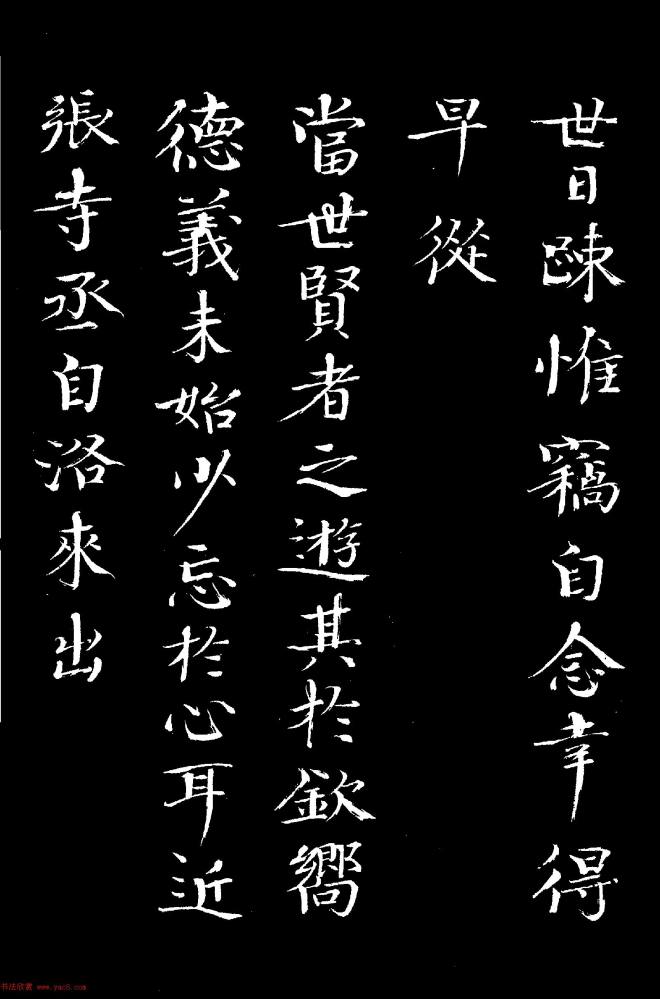 世日踈惟竊自念幸得
早從
當世賢者之遊其於欽嚮
德義未始以忘於心耳近
張寺丞自洛來出
书法欣赏 www.yac8.com